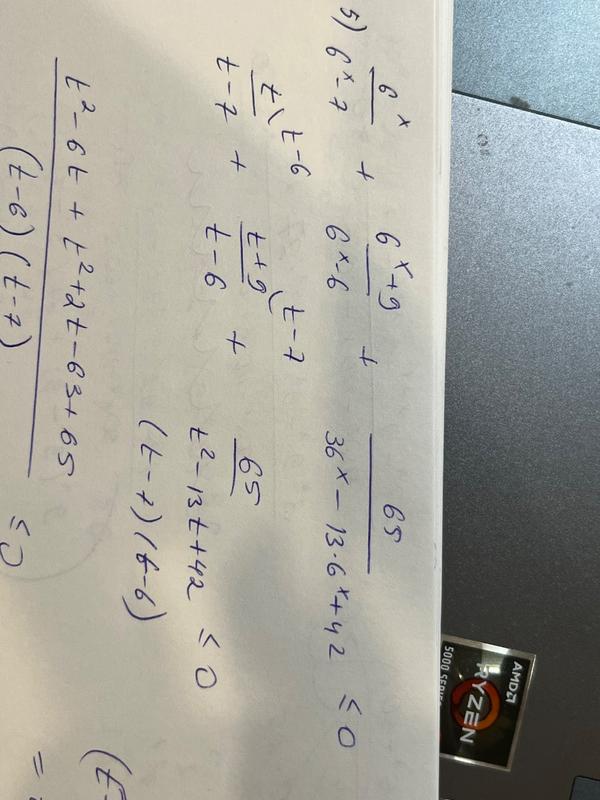 5) 6^x/(6^x-7) + (6^x+9)/(6^x-6) + 65/(36^x-13·6^x+42) ≤ 0
t/(t-7) \ t-6 + (t+9)/(t-6) \ t-7 + 65/(t²-13t+42) ≤ 0
(t-7)(t-6)
(t²-6t+t²+2t-63+65)/((t-6)(t-7)) ≤ 0
(t-
=
AMD
RYZEN
5000 SERIES